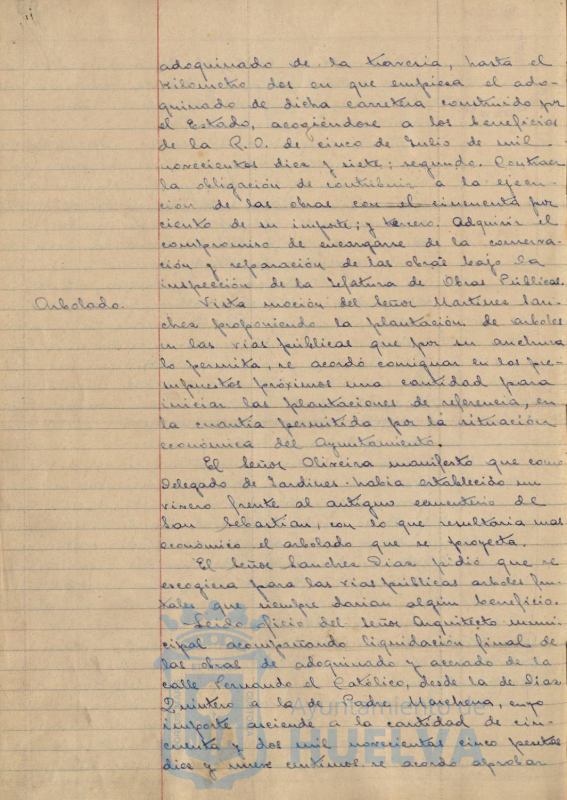 adoquinado de la travesia, hasta el
kilometro dos en que empieza el ado-
quinado de dicha carretera construido por
el Estado, acogiéndose a los beneficios
de la R.O. de cinco de Julio de mil
novecientos diez y siete; segundo. Contraer
la obligación de contribuir a la ejecu-
ción de las obras con el cincuenta por
ciento de su importe; y tercero. Adquirir el
compromiso de encargarse de la conserva-
ción y reparación de las obras bajo la
inspección de la Jefatura de Obras Públicas.
Arbolado.
Vista moción del Señor Martinez San-
chez proponiendo la plantación de arboles
en las vías públicas que por su anchura
lo permita, se acordó consignar en los pre-
supuestos próximos una cantidad para
iniciar las plantaciones de referencia, en
la cuantía permitida por la situación
económica del Ayuntamiento.
El Señor Oliveira manifestó que como
Delegado de Jardines había establecido un
vivero frente al antiguo cementerio de
San Sebastian, con lo que resultaria mas
económico el arbolado que se proyecta.
El Señor Sanchez Diaz pidió que se
escogiera para las vías públicas arboles fru-
tales que siempre darian algún beneficio.
Leido oficio del Señor Arquitecto muni-
cipal acompañando liquidación final de
las obras de adoquinado y acerado de la
calle Fernando el Católico, desde la de Diaz
Quintero a la de Padre Marchena, cuyo
importe asciende a la cantidad de cin-
cuenta y dos mil novecientas cinco pesetas
diez y nueve centimos se acordo aprobar
Ayuntamiento de
HUELVA